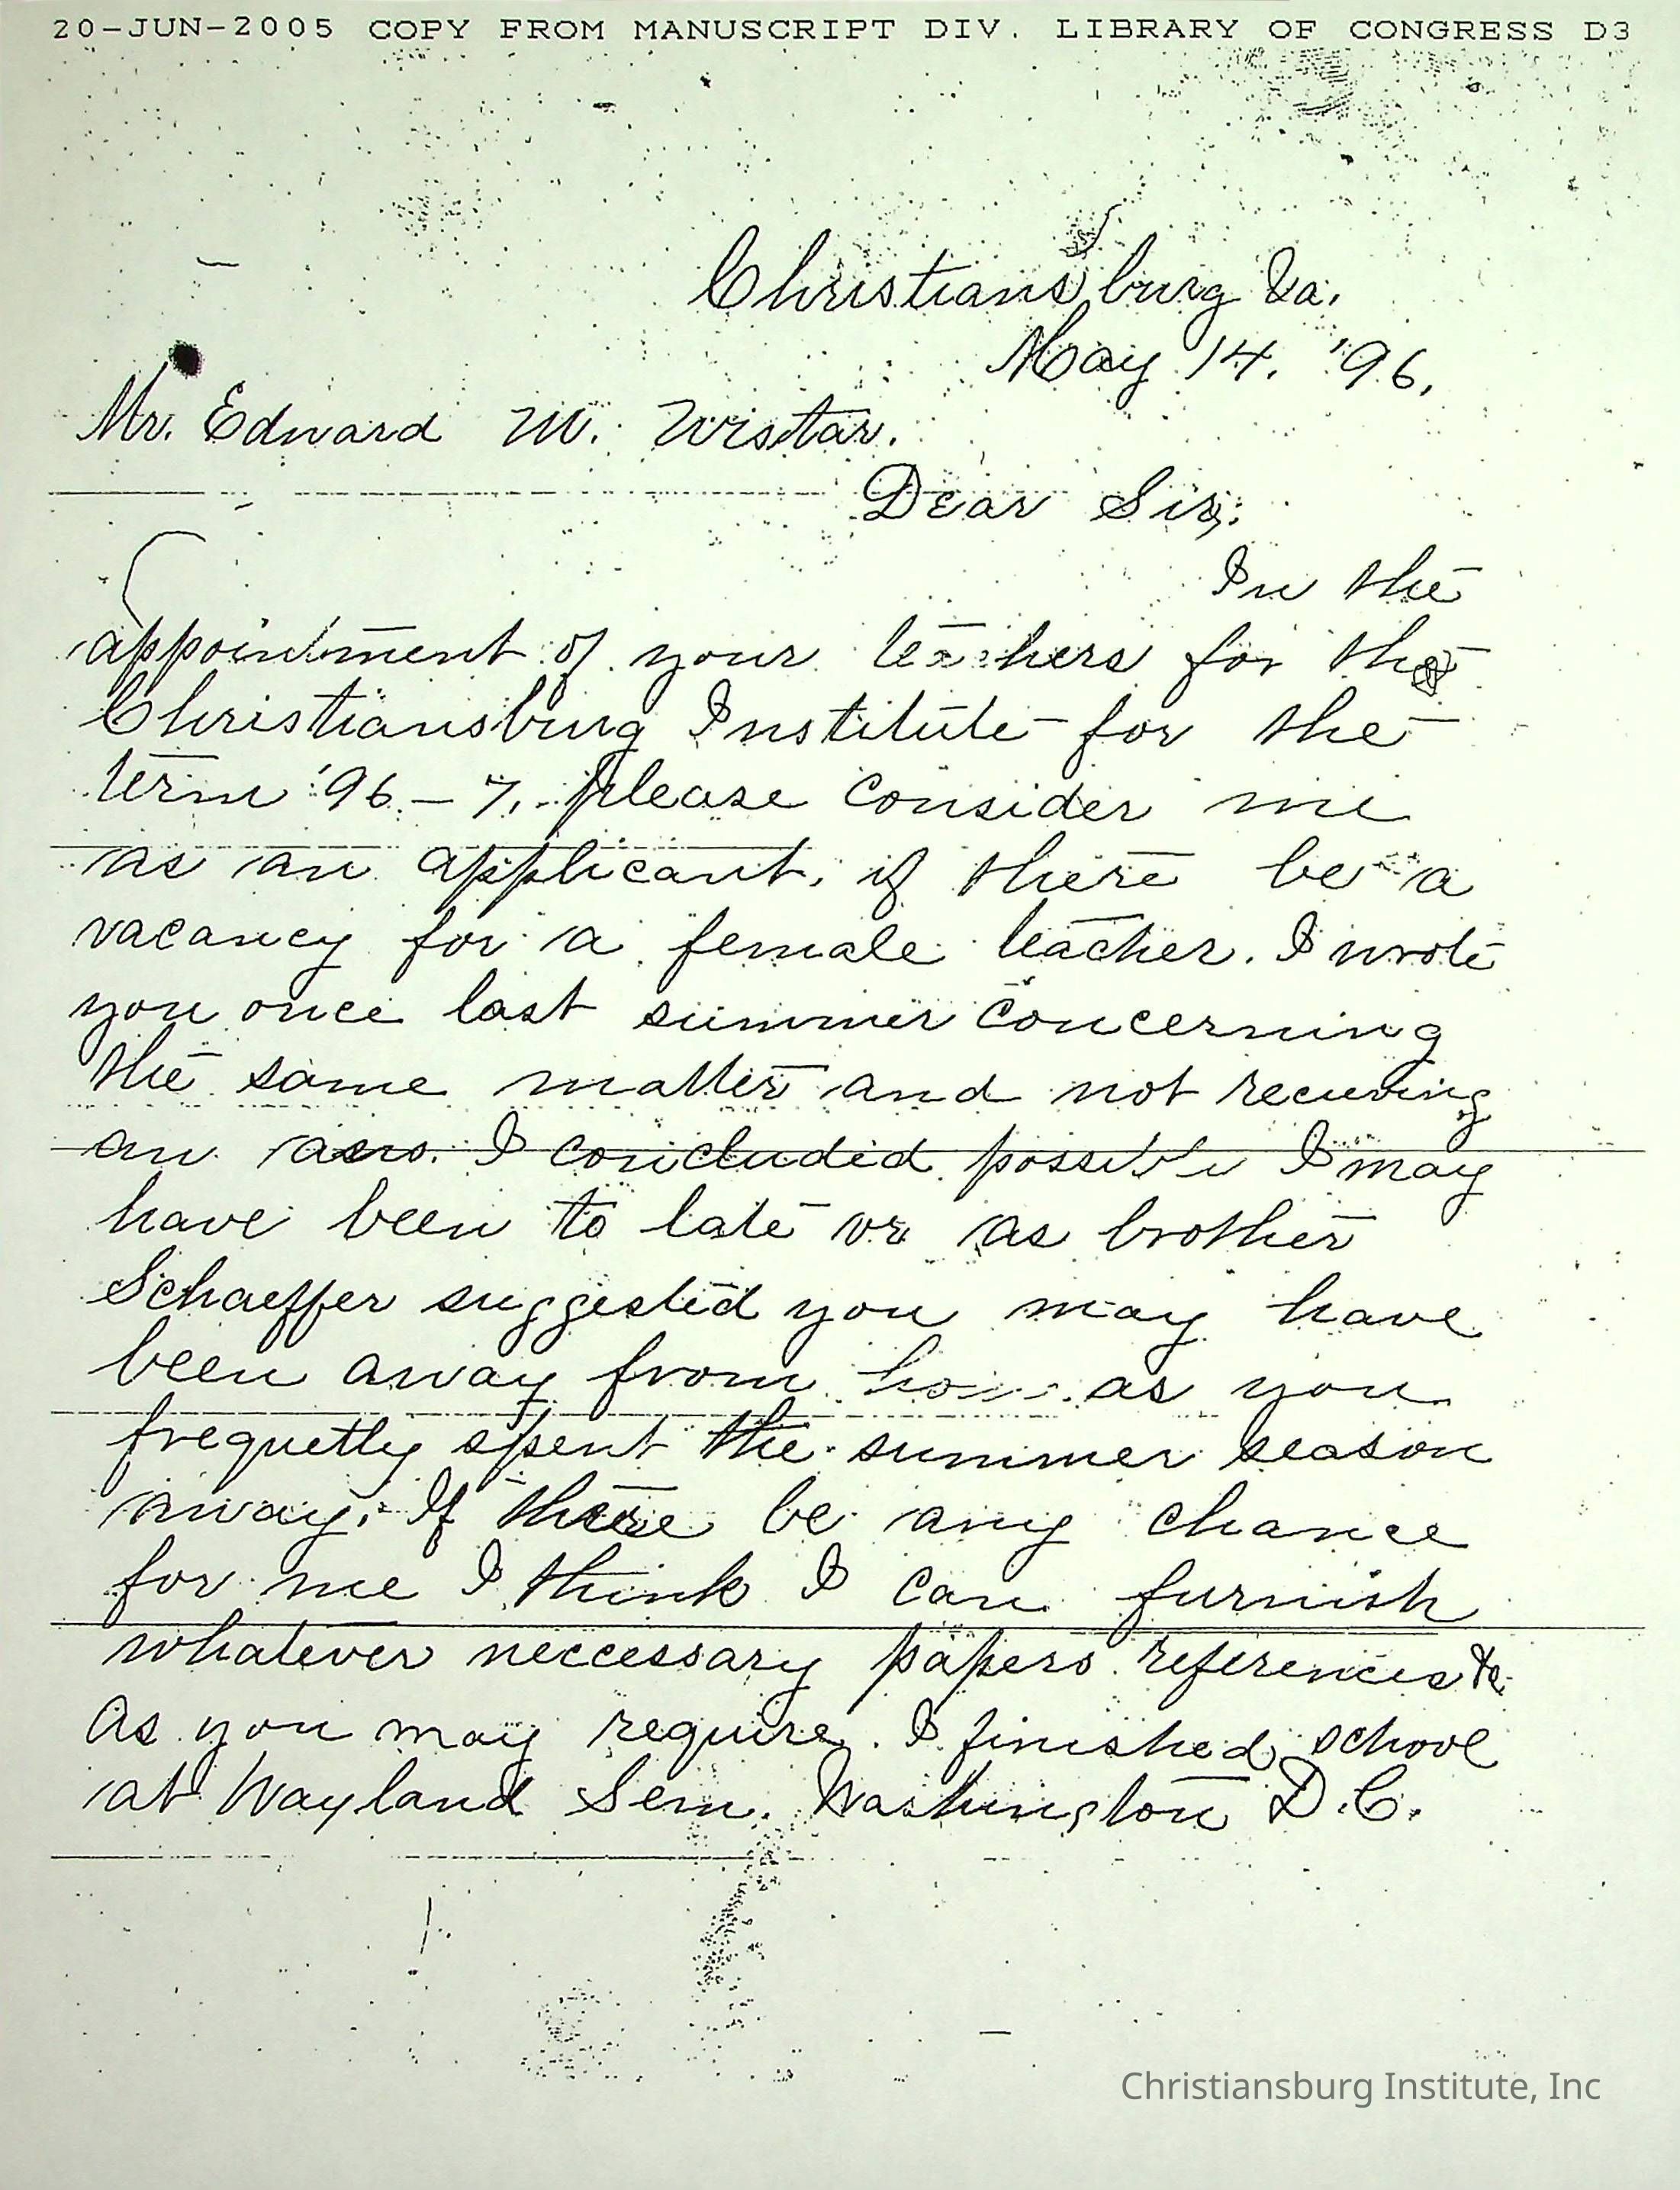 20-JUN-2005 COPY FROM MANUSCRIPT DIV. LIBRARY OF CONGRESS D3
Christiansburg Va.
May 14. '96.
Mr. Edward M. Wistar.
Dear Sir;
In the
appointment of your teachers for the
Christiansburg Institute for the
term '96-7, please consider me
as an applicant, if there be a
vacancy for a female teacher. I wrote
you once last summer concerning
the same matter and not receiving
an ans. I concluded possible I may
have been to late or as brother
Schaeffer suggested you may have
been away from home as you
frequetly spent the summer season
away. If there be any chance
for me I think I can furnish
whatever neccessary papers references &c
as you may require. I finished school
at Wayland Sem. Washington D.C.
Christiansburg Institute, Inc